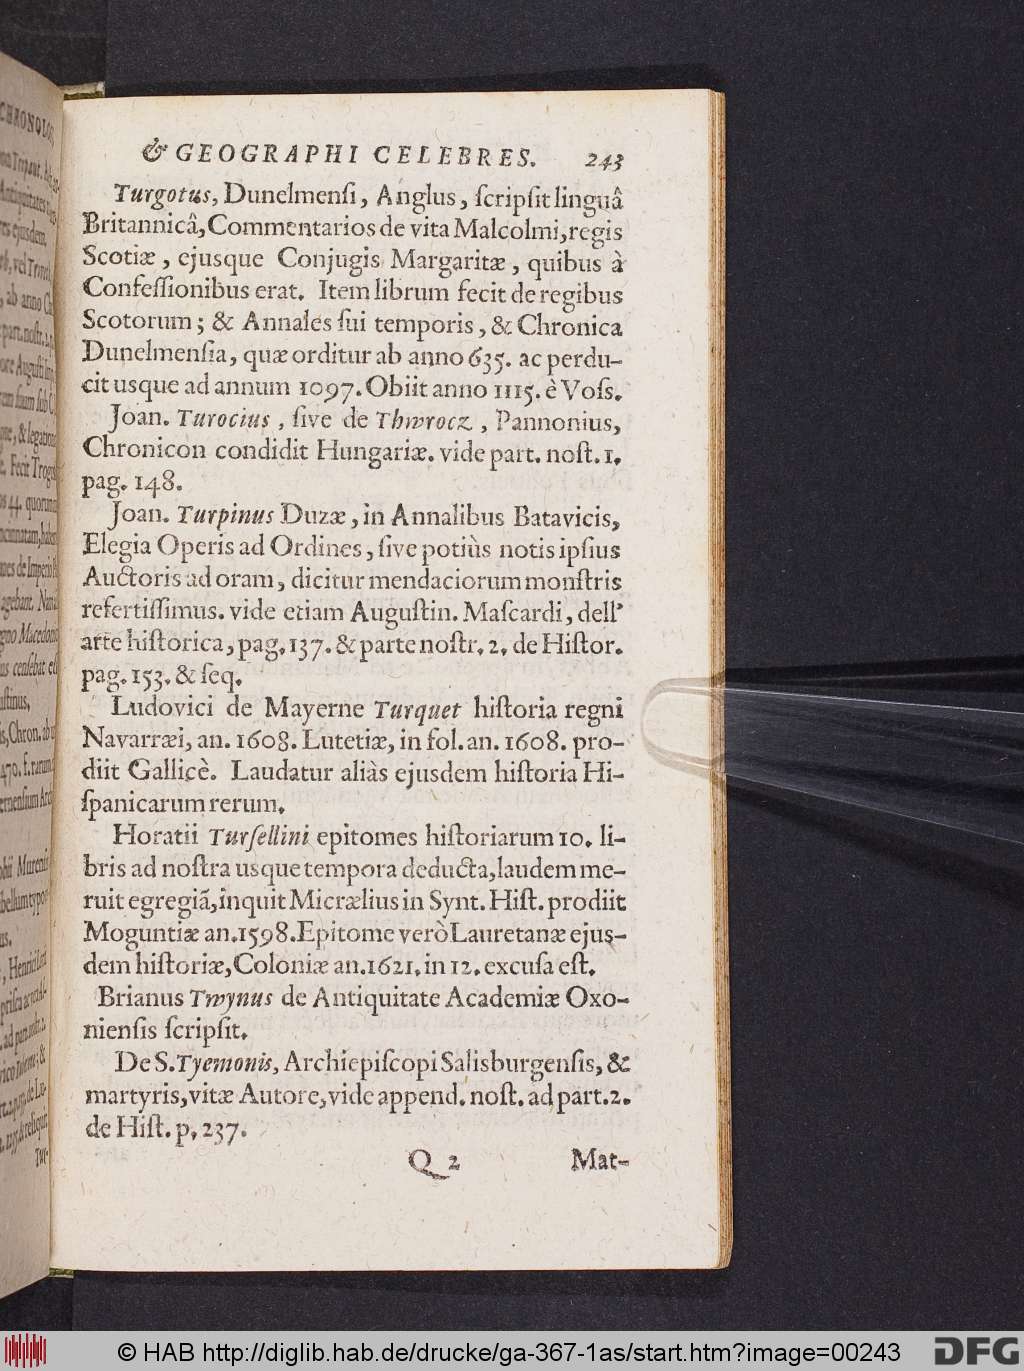 & GEOGRAPHI CELEBRES. 243
Turgotus, Dunelmenſi, Anglus, ſcripſit linguâ
Britannicâ, Commentarios de vita Malcolmi, regis
Scotiæ, ejusque Conjugis Margaritæ, quibus à
Confeſſionibus erat. Item librum fecit de regibus
Scotorum; & Annales ſui temporis, & Chronica
Dunelmenſia, quæ orditur ab anno 635. ac perdu-
cit usque ad annum 1097. Obiit anno 1115. è Voſs.
Joan. Turocius, ſive de Thwrocz, Pannonius,
Chronicon condidit Hungariæ. vide part. noſt. 1.
pag. 148.
Joan. Turpinus Duzæ, in Annalibus Batavicis,
Elegia Operis ad Ordines, ſive potiùs notis ipſius
Auctoris ad oram, dicitur mendaciorum monſtris
refertiſſimus. vide etiam Auguſtin. Maſcardi, dell'
arte hiſtorica, pag. 137. & parte noſtr. 2. de Hiſtor.
pag. 153. & ſeq.
Ludovici de Mayerne Turquet hiſtoria regni
Navarræi, an. 1608. Lutetiæ, in fol. an. 1608. pro-
diit Gallicè. Laudatur aliàs ejusdem hiſtoria Hi-
ſpanicarum rerum.
Horatii Turſellini epitomes hiſtoriarum 10. li-
bris ad noſtra usque tempora deducta, laudem me-
ruit egregiã, inquit Micrælius in Synt. Hiſt. prodiit
Moguntiæ an. 1598. Epitome verò Lauretanæ ejus-
dem hiſtoriæ, Coloniæ an. 1621. in 12. excuſa eſt.
Brianus Twynus de Antiquitate Academiæ Oxo-
nienſis ſcripſit.
De S. Tyemonis, Archiepiſcopi Salisburgenſis, &
martyris, vitæ Autore, vide append. noſt. ad part. 2.
de Hiſt. p. 237.
Q 2 Mat-
© HAB http://diglib.hab.de/drucke/ga-367-1as/start.htm?image=00243
DFG